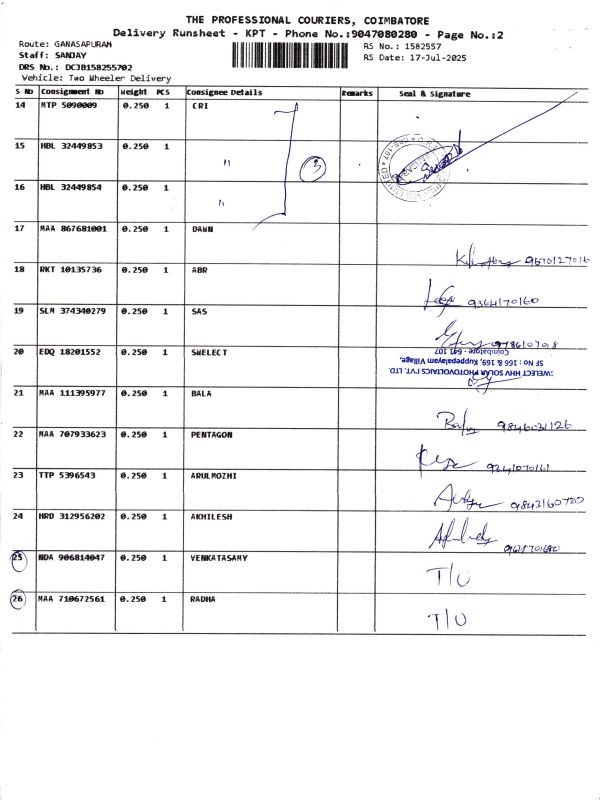 THE PROFESSIONAL COURIERS, COIMBATORE
Delivery Runsheet - KPT - Phone No.:9047080280 - Page No.:2
Route: GANASAPURAM
RS No.: 1582557
Staff: SANJAY
RS Date: 17-Jul-2025
DRS No.: DCJB158255702
Vehicle: Two Wheeler Delivery
S NO Consignment No Weight PCS Consignee Details Remarks Seal & Signature
14 MTP 5090009 0.250 1 CRI
15 HBL 32449853 0.250 1 "
3
16 HBL 32449854 0.250 1 "
17 MAA 867681001 0.250 1 DAWN
18 RKT 10135736 0.250 1 ABR 9364170160
19 SLM 374340279 0.250 1 SAS
20 EDQ 18201552 0.250 1 SWELECT
SWELECT HHV SOLAR PHOTOVOLTAICS PVT. LTD.
SF No : 166 & 169, Kuppepalayam Village,
Coimbatore - 641 107
21 MAA 111395977 0.250 1 BALA 9846031126
22 MAA 707933623 0.250 1 PENTAGON
23 TTP 5396543 0.250 1 ARULMOZHI 9843160780
24 HRD 312956202 0.250 1 AKHILESH
25 NDA 906814047 0.250 1 VENKATASAMY T/O
26 MAA 710672561 0.250 1 RADHA T/O